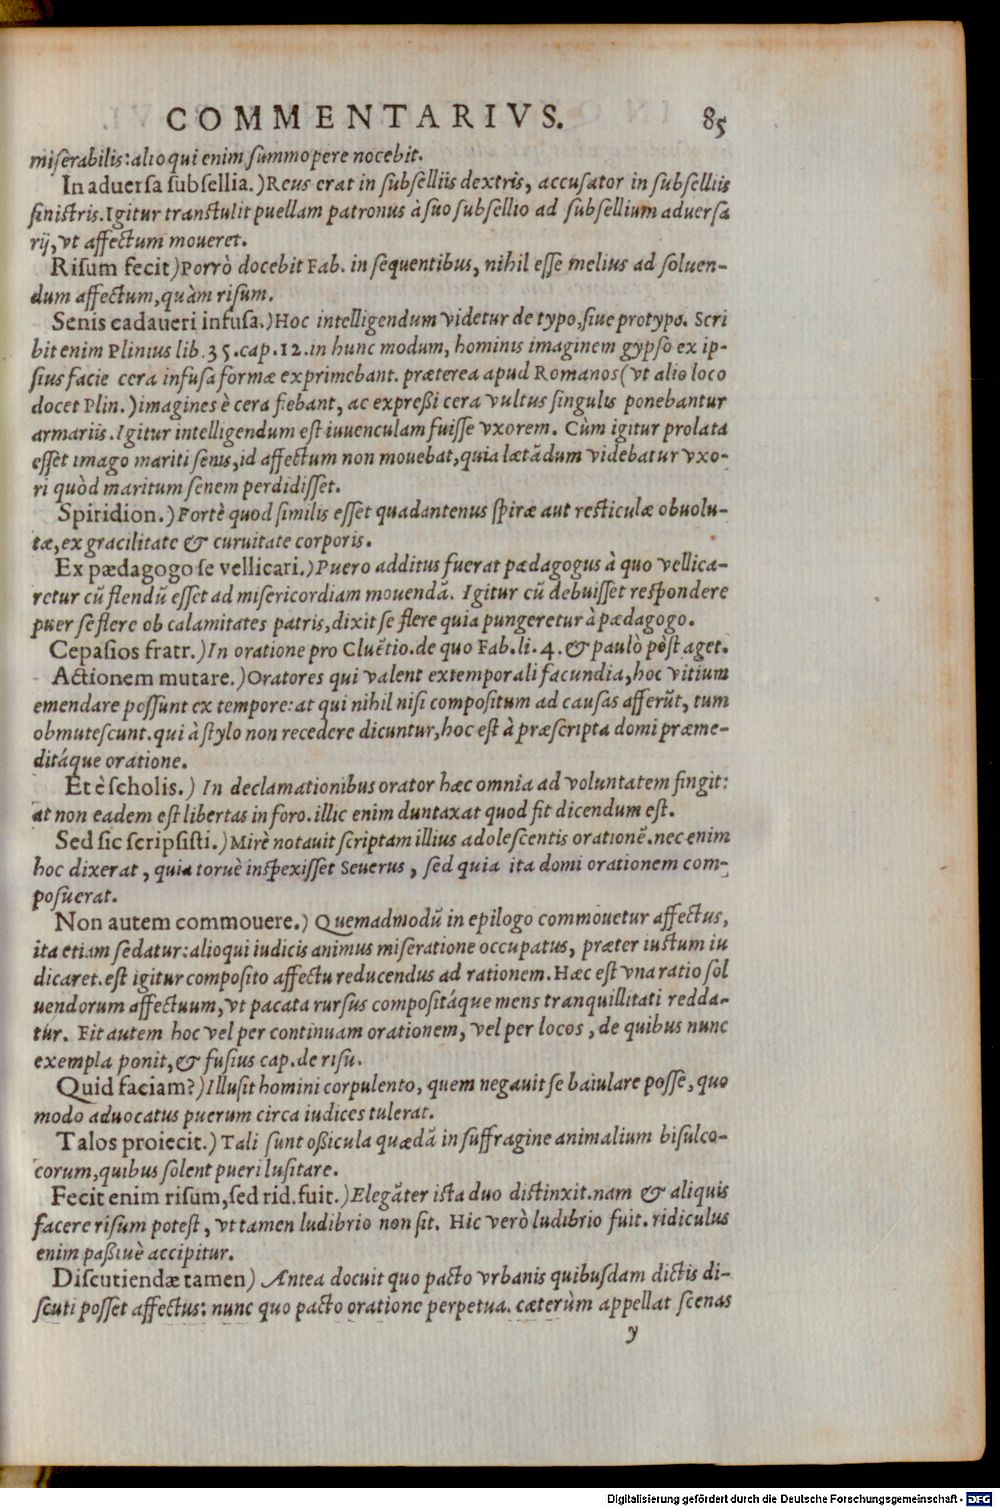 COMMENTARIVS. 85
miserabilis: alioqui enim summopere nocebit.
In aduersa subsellia.) Reus erat in subselliis dextris, accusator in subselliis
sinistris. Igitur transtulit puellam patronus à suo subsellio ad subsellium aduersa
rij, vt affectum moueret.
Risum fecit) Porrò docebit Fab. in sequentibus, nihil esse melius ad soluen-
dum affectum, quàm risum.
Senis cadaueri infusa.) Hoc intelligendum videtur de typo, siue protypo. Scri
bit enim Plinius lib. 35. cap. 12. in hunc modum, hominis imaginem gypso ex ip-
sius facie cera infusa formæ exprimebant. præterea apud Romanos (vt alio loco
docet Plin.) imagines è cera fiebant, ac expreßi cera vultus singulis ponebantur
armariis. Igitur intelligendum est iuuenculam fuisse vxorem. Cùm igitur prolata
esset imago mariti senis, id affectum non mouebat, quia lætādum videbatur vxo-
ri quòd maritum senem perdidisset.
Spiridion.) Fortè quod similis esset quadantenus spiræ aut resticulæ obuolu-
tæ, ex gracilitate & curuitate corporis.
Ex pædagogo se vellicari.) Puero additus fuerat pædagogus à quo vellica-
retur cū flendū esset ad misericordiam mouendā. Igitur cū debuisset respondere
puer se flere ob calamitates patris, dixit se flere quia pungeretur à pædagogo.
Cepasios fratr.) In oratione pro Cluētio. de quo Fab. li. 4. & paulò pòst aget.
Actionem mutare.) Oratores qui valent extemporali facundia, hoc vitium
emendare possunt ex tempore: at qui nihil nisi compositum ad causas afferūt, tum
obmutescunt. qui à stylo non recedere dicuntur, hoc est à præscripta domi præme-
ditáque oratione.
Et è scholis.) In declamationibus orator hæc omnia ad voluntatem fingit:
at non eadem est libertas in foro. illic enim duntaxat quod fit dicendum est.
Sed sic scripsisti.) Mirè notauit scriptam illius adolescentis orationē. nec enim
hoc dixerat, quia toruè inspexisset Seuerus, sed quia ita domi orationem com-
posuerat.
Non autem commouere.) Quemadmodū in epilogo commouetur affectus,
ita etiam sedatur: alioqui iudicis animus miseratione occupatus, præter iustum iu
dicaret. est igitur composito affectu reducendus ad rationem. Hæc est vna ratio sol
uendorum affectuum, vt pacata rursus compositáque mens tranquillitati redda-
tur. Fit autem hoc vel per continuam orationem, vel per locos, de quibus nunc
exempla ponit, & fusius cap. de risu.
Quid faciam?) Illusit homini corpulento, quem negauit se baiulare posse, quo
modo aduocatus puerum circa iudices tulerat.
Talos proiecit.) Tali sunt oßicula quædā in suffragine animalium bisulco-
corum, quibus solent pueri lusitare.
Fecit enim risum, sed rid. fuit.) Elegāter ista duo distinxit. nam & aliquis
facere risum potest, vt tamen ludibrio non sit. Hic verò ludibrio fuit. ridiculus
enim paßiuè accipitur.
Discutiendæ tamen) Antea docuit quo pacto vrbanis quibusdam dictis di-
scuti posset affectus: nunc quo pacto oratione perpetua. cæterùm appellat scenas
y
Digitalisierung gefördert durch die Deutsche Forschungsgemeinschaft - DFG